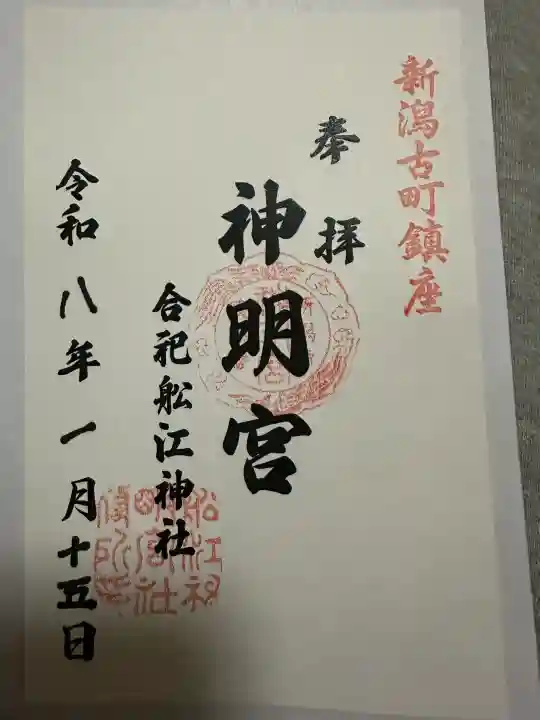 新潟古町鎮座
奉拝
神明宮
合祀舩江神社
令和八年一月十五日